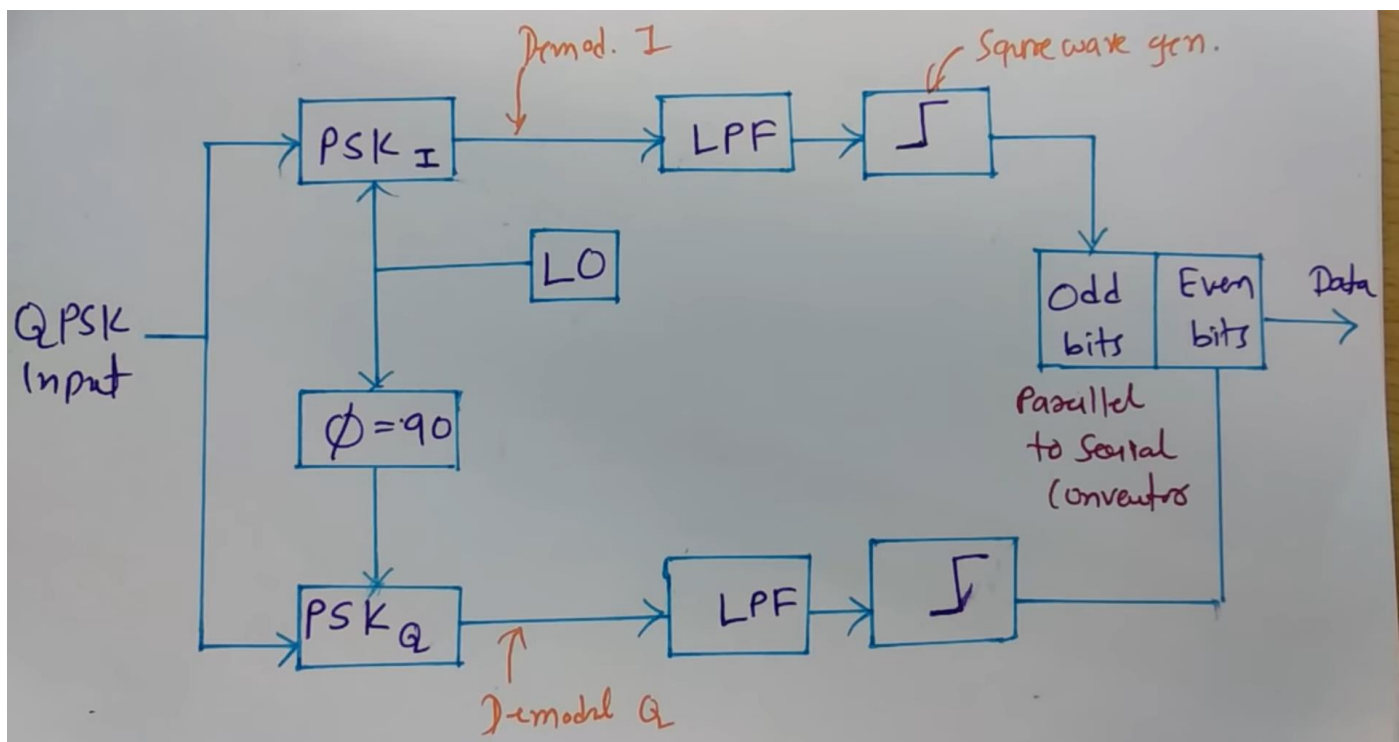 Demod. I
Squre wave gen.
PSK I
LPF
LO
QPSK
Input
Odd
bits
Even
bits
Data
ϕ = 90
Parallel
to Serial
PSK Q
LPF
Demodul Q